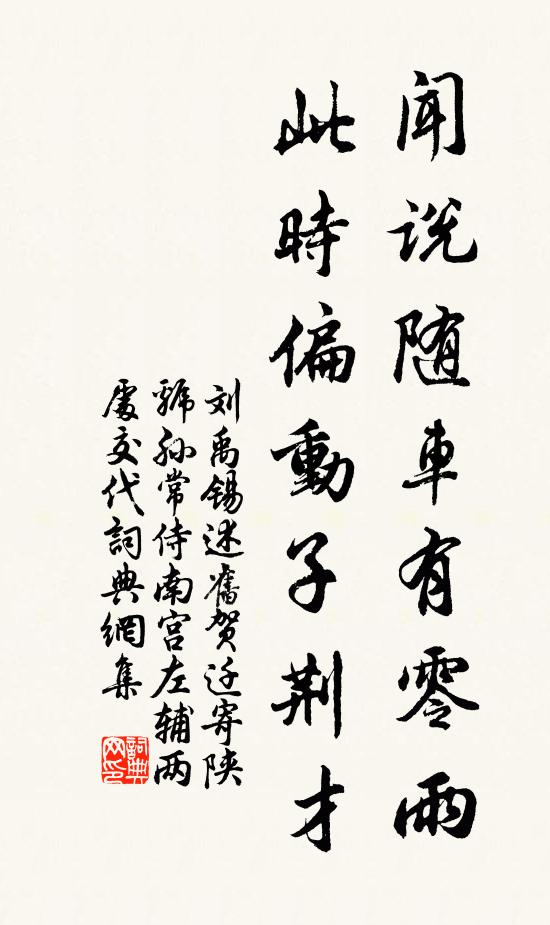 闻说随車有零雨
此時偏動子荆才
刘禹锡述舊贺迁寄陕
虢孙常侍南宫左辅两
處交代詞典網集
詞典网印